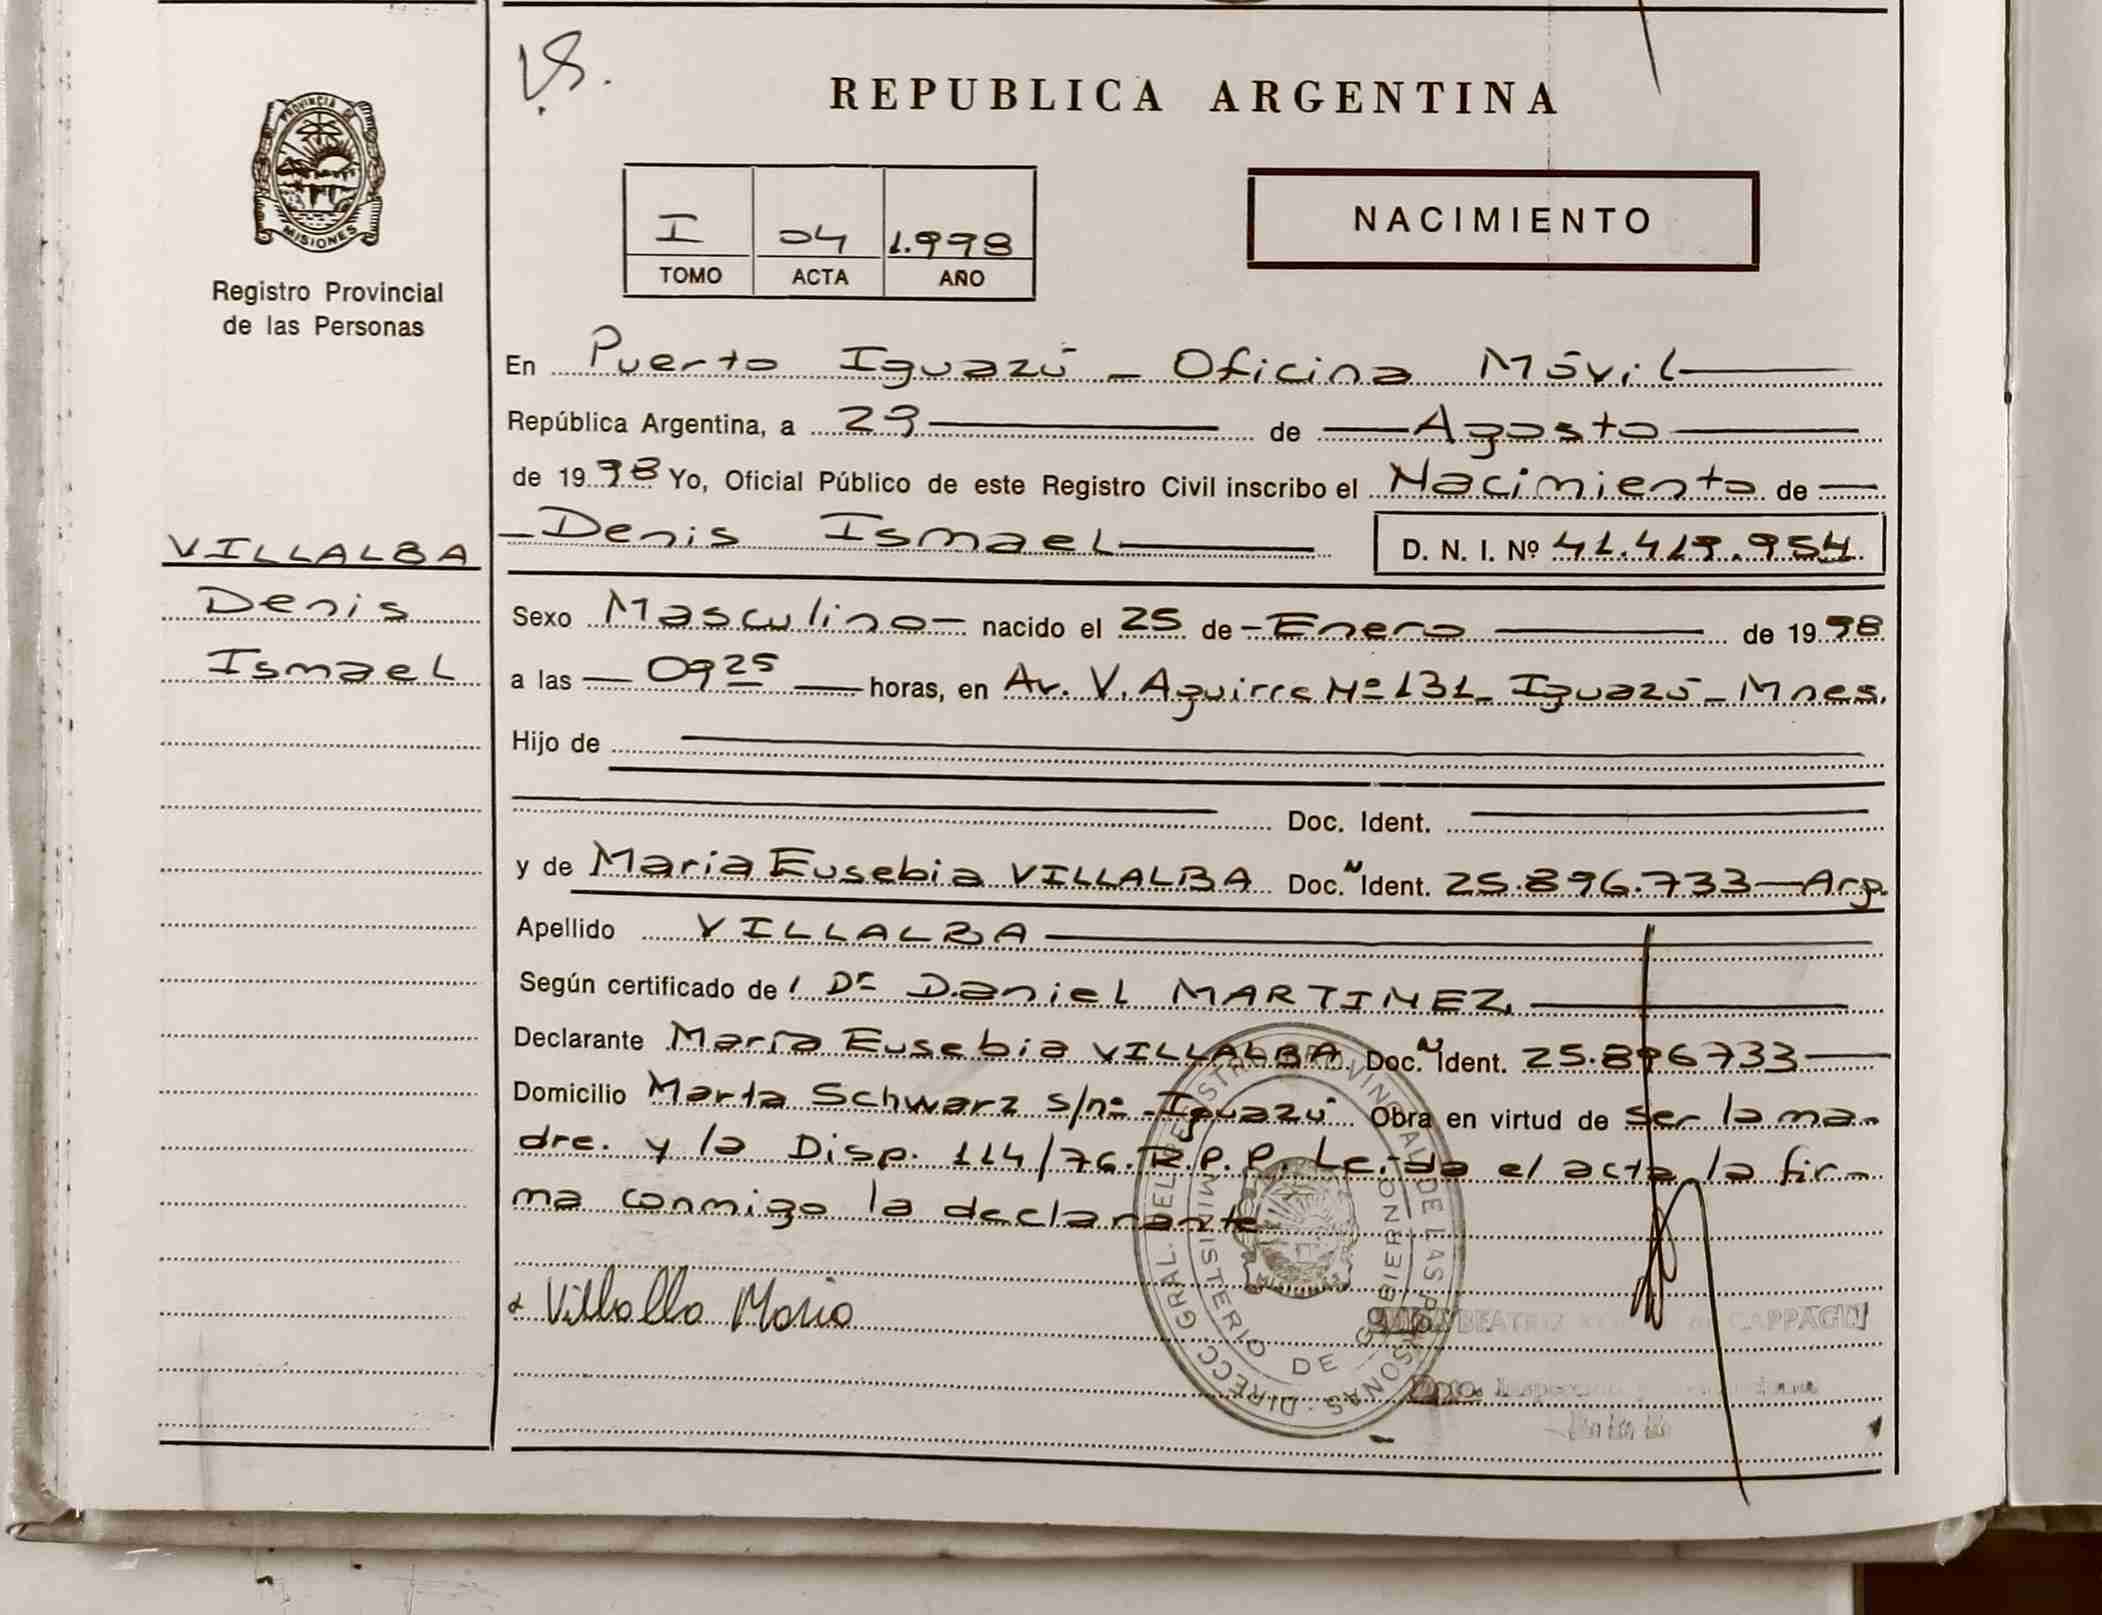 V.S.
REPUBLICA ARGENTINA
PROVINCIA DE
MISIONES
Registro Provincial
de las Personas
I 04 1.998
TOMO ACTA AÑO
NACIMIENTO
En Puerto Iguazú - Oficina Móvil
República Argentina, a 29 de Agosto
de 1998 Yo, Oficial Público de este Registro Civil inscribo el Nacimiento de
Denis Ismael D. N. I. Nº 41.419.954
VILLALBA
Denis
Ismael
Sexo Masculino nacido el 25 de Enero de 1998
a las 0925 horas, en Av. V. Aguirre Nº 131 - Iguazú - Mnes.
Hijo de
Doc. Ident.
y de Maria Eusebia VILLALBA Doc. N Ident. 25.896.733 - Arg.
Apellido VILLALBA
Según certificado de l Dr Daniel MARTINEZ
Declarante María Eusebia VILLALBA Doc. N Ident. 25.896733
Domicilio Marta Schwarz s/nº - Iguazú Obra en virtud de ser la ma-
dre. y la Disp. 114/76. R.P.P. Leida el acta la fir-
ma conmigo la declarante
Villalba Maria
DIRECC. GRAL. DEL REGISTRO PROVINCIAL DE LAS PERSONAS
MINISTERIO DE GOBIERNO
MISIONES
BEATRIZ CAPPAGLI
Dpto. Inspección